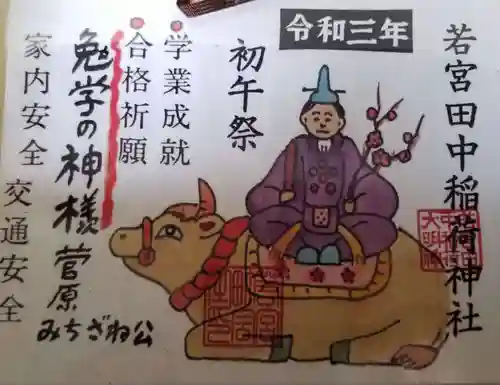 若宮田中稲荷神社
令和三年
初午祭
学業成就
合格祈願
勉学の神様 菅原
みちざね公
家内安全 交通安全